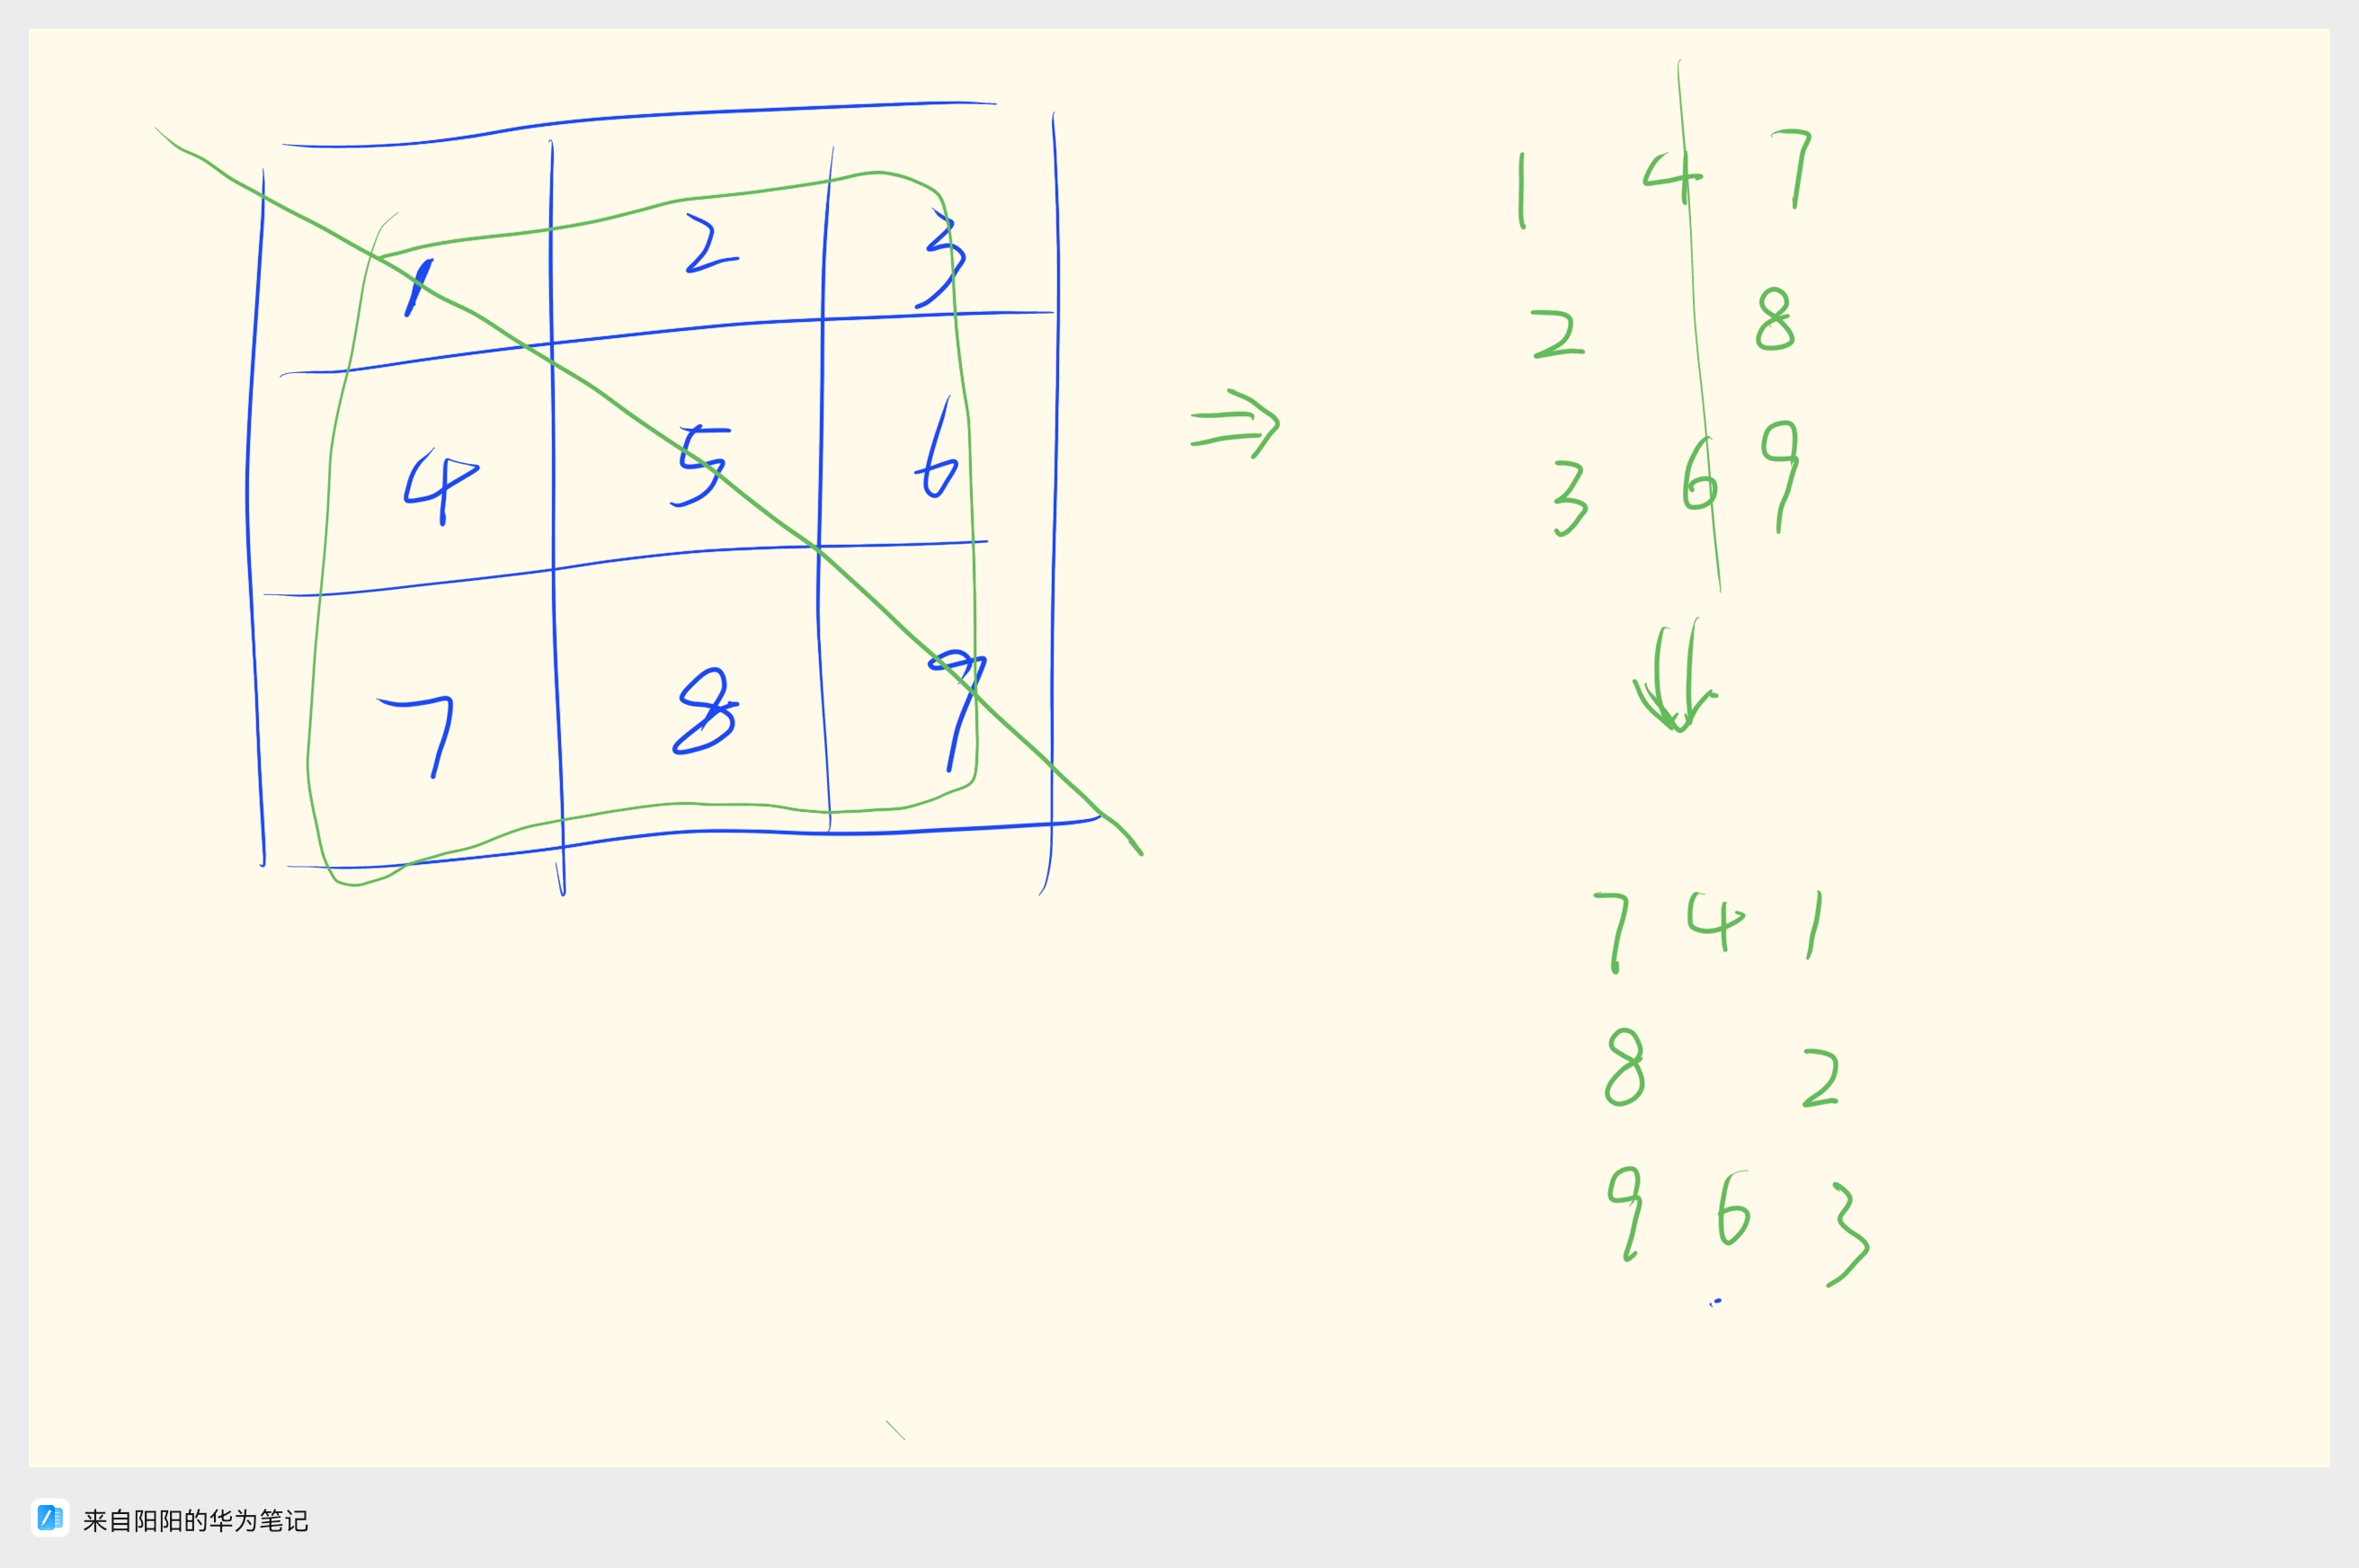 1 2 3
4 5 6
7 8 9
⇒
1 4 7
2 8
3 6 9
⇓
7 4 1
8 2
9 6 3
来自阳阳的华为笔记